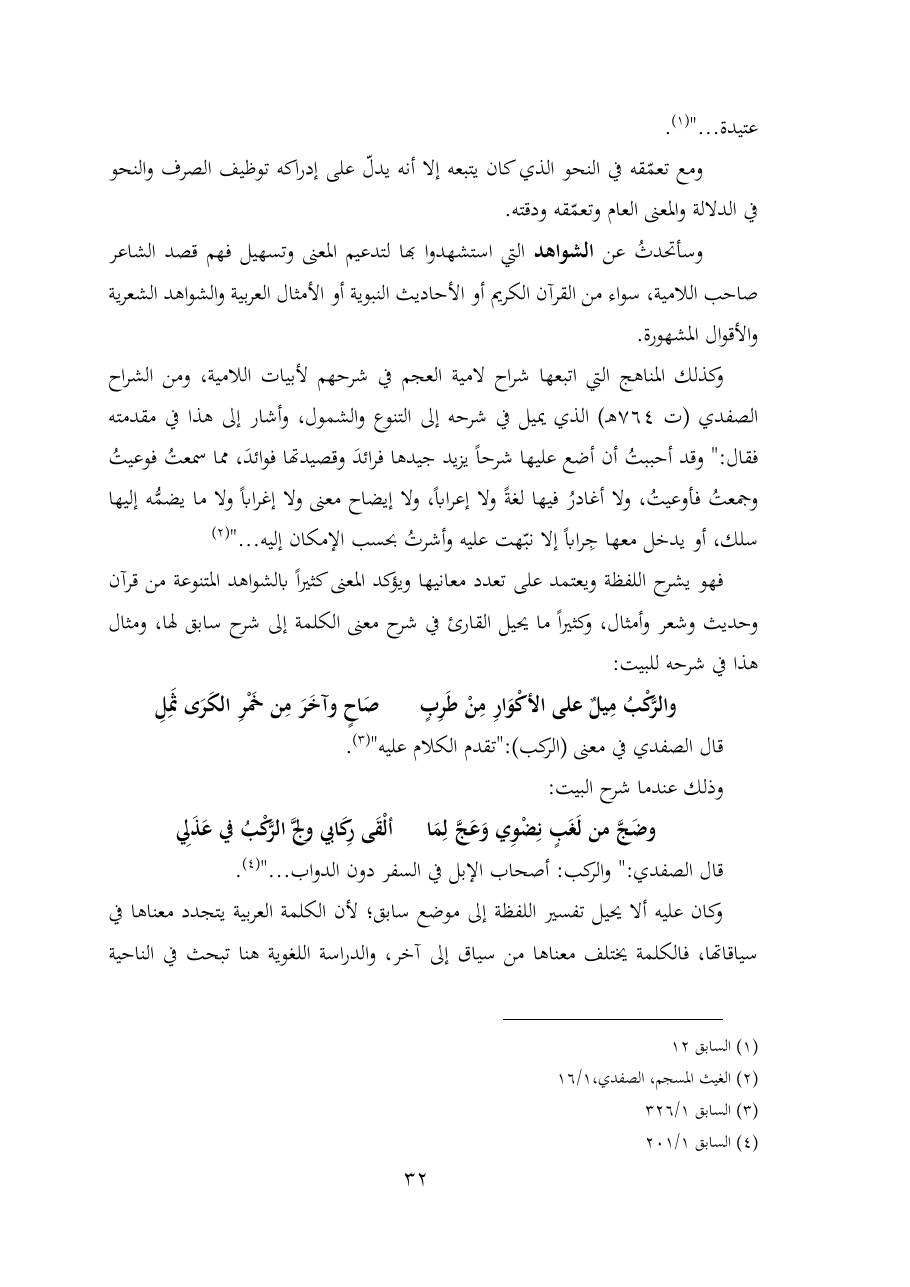 عتيدة..."(١).
ومع تعمّقه في النحو الذي كان يتبعه إلا أنه يدلّ على إدراكه توظيف الصرف والنحو
في الدلالة والمعنى العام وتعمّقه ودقته.
وسأتحدثُ عن الشواهد التي استشهدوا بها لتدعيم المعنى وتسهيل فهم قصد الشاعر
صاحب اللامية، سواء من القرآن الكريم أو الأحاديث النبوية أو الأمثال العربية والشواهد الشعرية
والأقوال المشهورة.
وكذلك المناهج التي اتبعها شراح لامية العجم في شرحهم لأبيات اللامية، ومن الشراح
الصفدي (ت ٧٦٤هـ) الذي يميل في شرحه إلى التنوع والشمول، وأشار إلى هذا في مقدمته
فقال:" وقد أحببتُ أن أضع عليها شرحاً يزيد جيدها فرائدَ وقصيدتها فوائدَ، مما سمعتُ فوعيتُ
وجمعتُ فأوعيتُ، ولا أغادرُ فيها لغةً ولا إعراباً، ولا إيضاح معنى ولا إغراباً ولا ما يضمُّه إليها
سلك، أو يدخل معها جِراباً إلا نبّهت عليه وأشرتُ بحسب الإمكان إليه..."(٢)
فهو يشرح اللفظة ويعتمد على تعدد معانيها ويؤكد المعنى كثيراً بالشواهد المتنوعة من قرآن
وحديث وشعر وأمثال، وكثيراً ما يحيل القارئ في شرح معنى الكلمة إلى شرح سابق لها، ومثال
هذا في شرحه للبيت:
والرَّكْبُ مِيلٌ على الأكْوَارِ مِنْ طَرِبٍ صَاحٍ وآخَرَ مِن خَمْرِ الكَرَى ثَمِلِ
قال الصفدي في معنى (الركب):"تقدم الكلام عليه"(٣).
وذلك عندما شرح البيت:
وضَجَّ من لَغَبٍ نِضْوِي وَعَجَّ لِمَا ألْقَى رِكَابي ولجَّ الرَّكْبُ في عَذَلِي
قال الصفدي:" والركب: أصحاب الإبل في السفر دون الدواب..."(٤).
وكان عليه ألا يحيل تفسير اللفظة إلى موضع سابق؛ لأن الكلمة العربية يتجدد معناها في
سياقاتها، فالكلمة يختلف معناها من سياق إلى آخر، والدراسة اللغوية هنا تبحث في الناحية
(١) السابق ١٢
(٢) الغيث المسجم، الصفدي،١٦/١
(٣) السابق ٣٢٦/١
(٤) السابق ٢٠١/١
٣٢